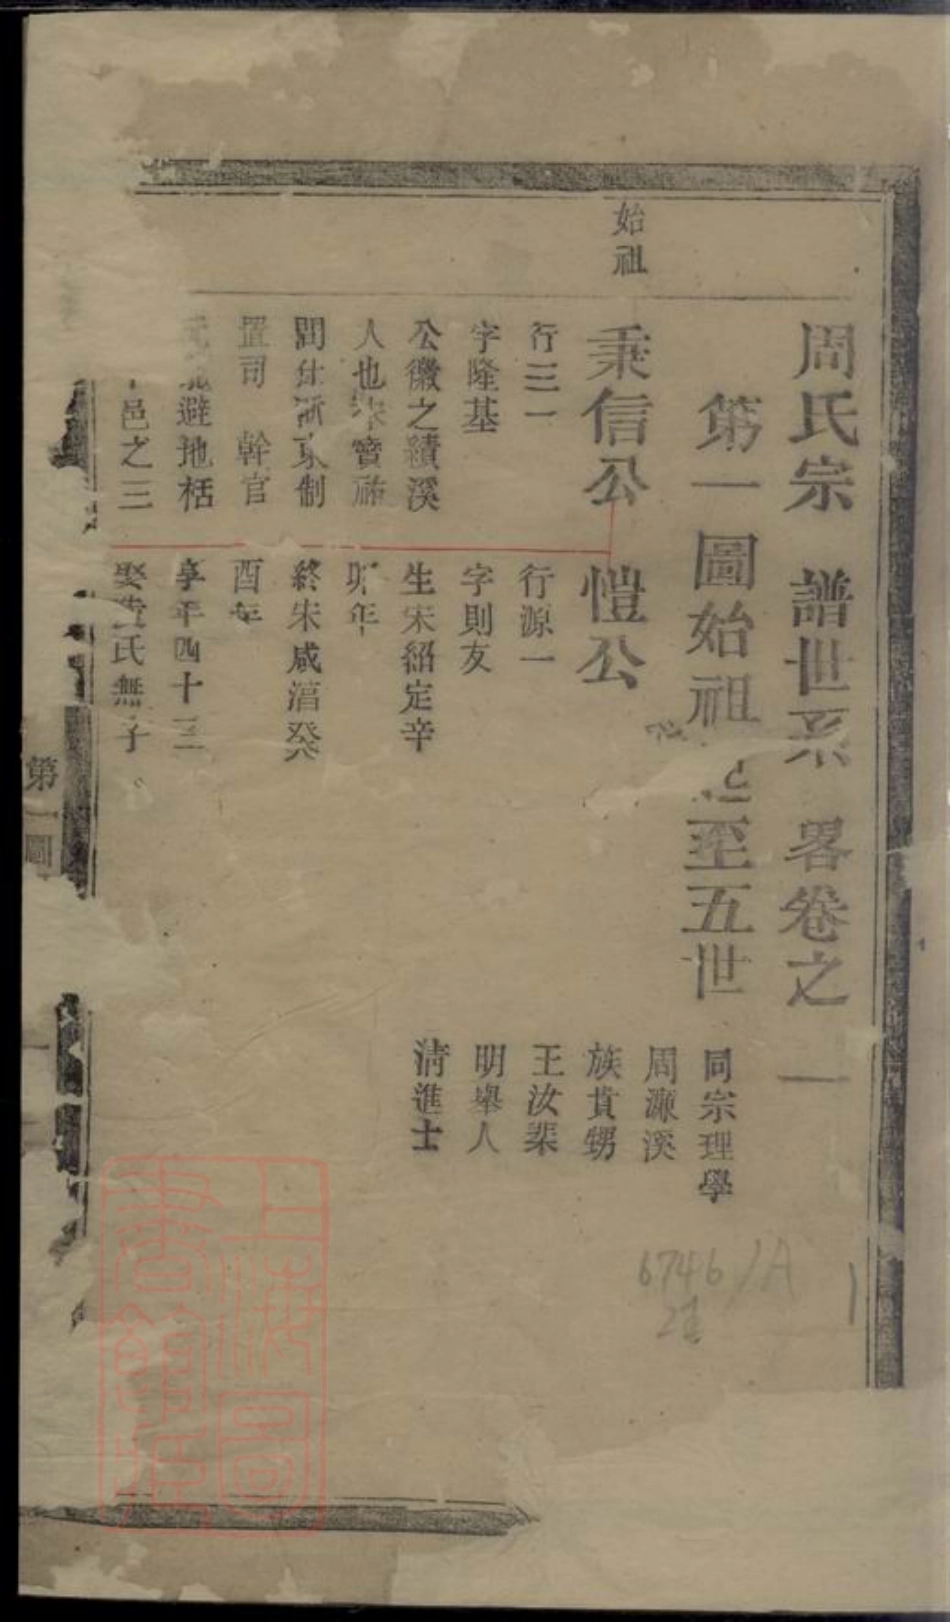 周氏宗譜世系畧卷之一
第一圖始祖 至五世
同宗理學
周濂溪
族貰甥
王汝棐
明舉人
清進士
始祖
秉信公
行三一
字隆基
公徽之績溪
人也宋寶祐
間仕浙東制
置司 幹官
避地栝
邑之三
愷公
行源一
字則友
生宋紹定辛
卯年
終宋咸淳癸
酉年
享年四十三
娶 氏無子
第一圖
一
6746/A
上海圖
書館藏